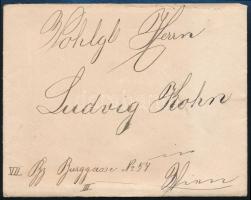 Wohlgl Herrn
Ludvig Kohn
VII. Bz Burggasse No 54
III.
Wien